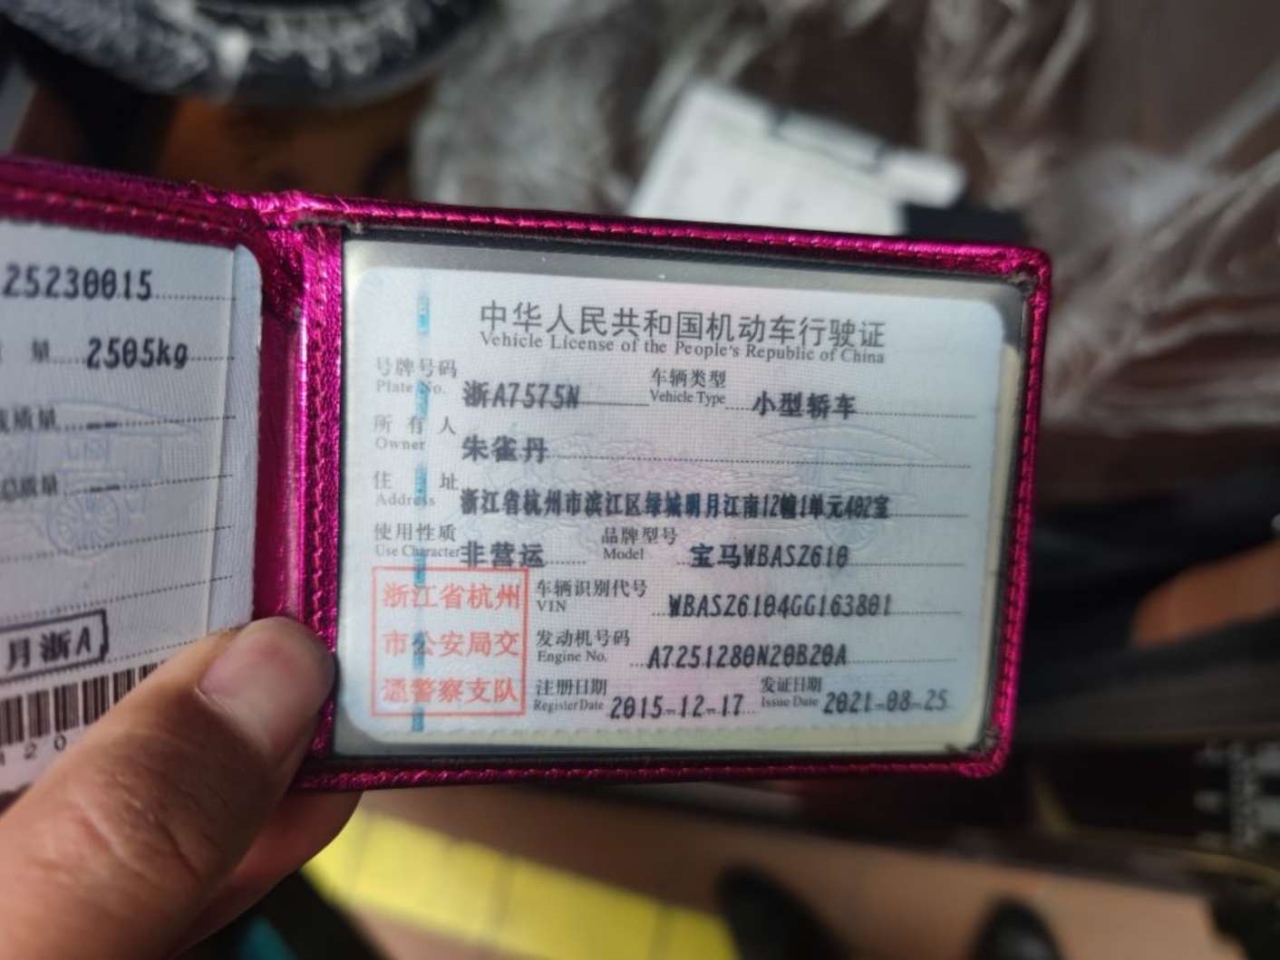 25230015
量 2505kg
质量 --
质量 --
月浙A
120
中华人民共和国机动车行驶证
Vehicle License of the People's Republic of China
号牌号码 浙A7575N 车辆类型 小型轿车
Plate No. Vehicle Type
所有人 朱雀丹
Owner
住址 浙江省杭州市滨江区绿城明月江南12幢1单元402室
Address
使用性质 非营运 品牌型号 宝马WBASZ610
Use Character Model
浙江省杭州
市公安局交
通警察支队
车辆识别代号 WBASZ6104GG163801
VIN
发动机号码 A7251280N20B20A
Engine No.
注册日期 2015-12-17 发证日期 2021-08-25
Register Date Issue Date